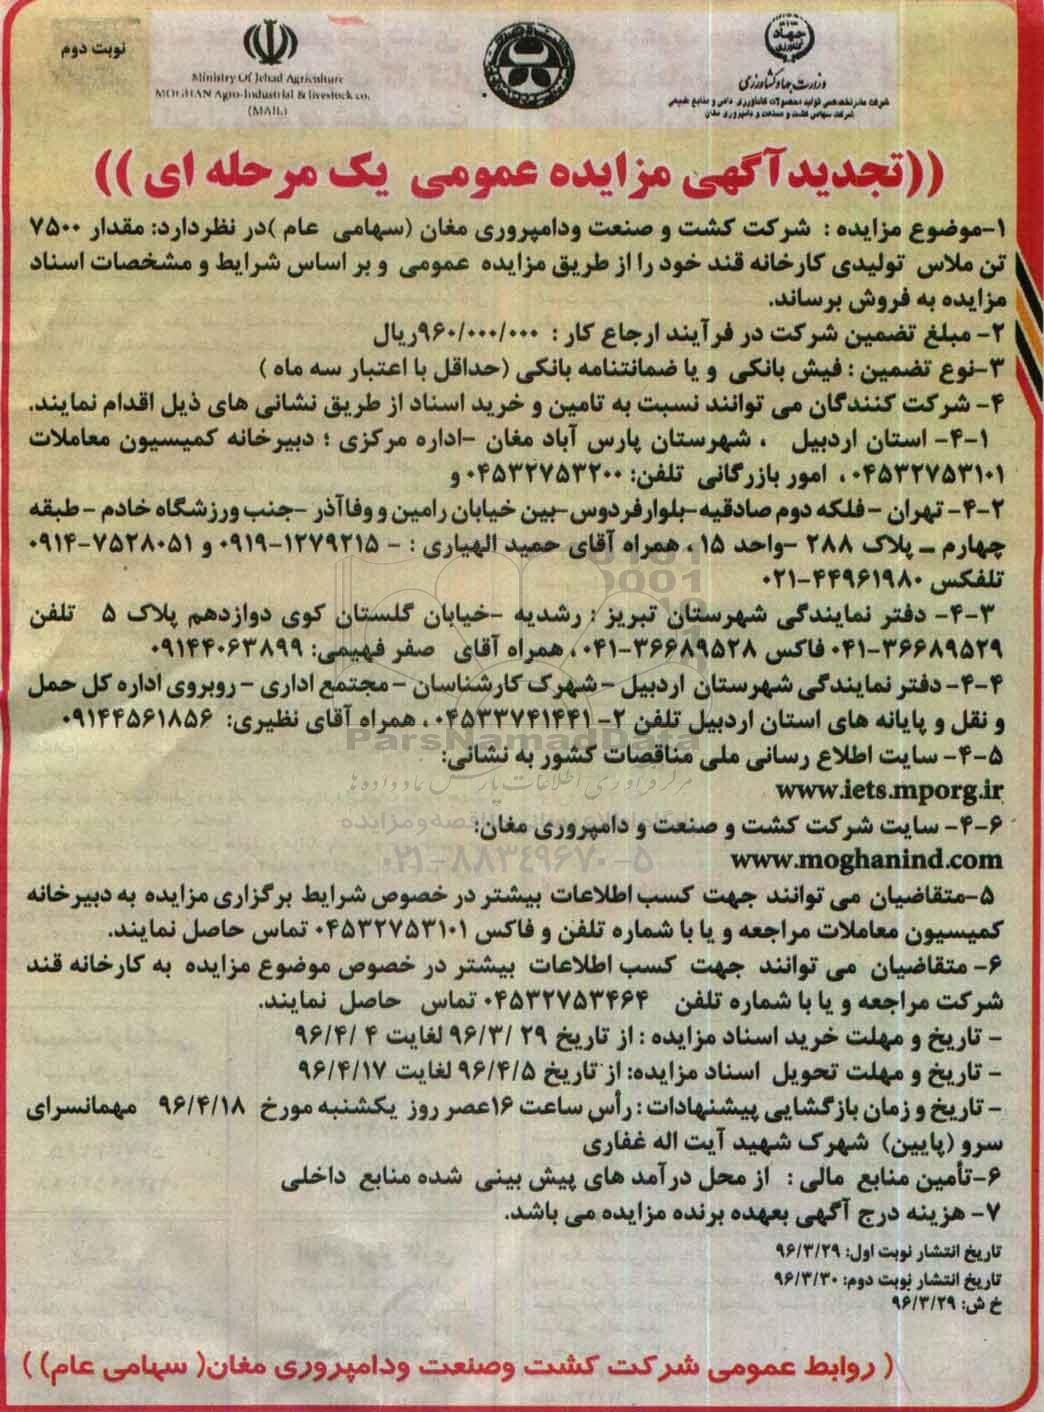 نوبت دوم
Ministry Of Jehad Agriculture
MOGHAN Agro-Industrial & livestock co.
(MAIL)
جهاد کشاورزی
وزارت جهاد کشاورزی
شرکت مادر تخصصی تولید محصولات کشاورزی، دامی و منابع طبیعی
شرکت سهامی کشت و صنعت و دامپروری مغان
((تجدیدآگهی مزایده عمومی یک مرحله ای))
۱-موضوع مزایده : شرکت کشت و صنعت ودامپروری مغان (سهامی عام )در نظردارد: مقدار ۷۵۰۰
تن ملاس تولیدی کارخانه قند خود را از طریق مزایده عمومی و بر اساس شرایط و مشخصات اسناد
مزایده به فروش برساند.
۲- مبلغ تضمین شرکت در فرآیند ارجاع کار : ۹۶۰/۰۰۰/۰۰۰ریال
۳-نوع تضمین : فیش بانکی و یا ضمانتنامه بانکی (حداقل با اعتبار سه ماه )
۴- شرکت کنندگان می توانند نسبت به تامین و خرید اسناد از طریق نشانی های ذیل اقدام نمایند.
۴-۱- استان اردبیل ، شهرستان پارس آباد مغان -اداره مرکزی ؛ دبیرخانه کمیسیون معاملات
۰۴۵۳۲۷۵۳۱۰۱ ، امور بازرگانی تلفن: ۰۴۵۳۲۷۵۳۲۰۰ و
۴-۲- تهران -فلکه دوم صادقیه-بلوارفردوس-بین خیابان رامین و وفاآذر -جنب ورزشگاه خادم - طبقه
چهارم – پلاک ۲۸۸ -واحد ۱۵ ، همراه آقای حمید الهیاری : - ۰۹۱۹-۱۲۷۹۲۱۵ و ۰۹۱۴-۷۵۲۸۰۵۱
تلفکس ۰۲۱-۴۴۹۶۱۹۸۰
۴-۳- دفتر نمایندگی شهرستان تبریز : رشدیه -خیابان گلستان کوی دوازدهم پلاک ۵ تلفن
۰۴۱-۳۶۶۸۹۵۲۹ فاکس ۰۴۱-۳۶۶۸۹۵۲۸ ، همراه آقای صفر فهیمی: ۰۹۱۴۴۰۶۳۸۹۹
۴-۴- دفتر نمایندگی شهرستان اردبیل – شهرک کارشناسان – مجتمع اداری – روبروی اداره کل حمل
و نقل و پایانه های استان اردبیل تلفن ۲- ۰۴۵۳۳۷۴۱۴۴۱ ، همراه آقای نظیری: ۰۹۱۴۴۵۶۱۸۵۶
ParsNamadData
۴-۵- سایت اطلاع رسانی ملی مناقصات کشور به نشانی:
مرکز فرآوری اطلاعات پارس نماد داده ها
www.iets.mporg.ir
۴-۶- سایت شرکت کشت و صنعت و دامپروری مغان:
www.moghanind.com
۰۲۱-۸۸۳۴۹۶۷۰-۵
۵-متقاضیان می توانند جهت کسب اطلاعات بیشتر در خصوص شرایط برگزاری مزایده به دبیرخانه
کمیسیون معاملات مراجعه و یا با شماره تلفن و فاکس ۰۴۵۳۲۷۵۳۱۰۱ تماس حاصل نمایند.
۶- متقاضیان می توانند جهت کسب اطلاعات بیشتر در خصوص موضوع مزایده به کارخانه قند
شرکت مراجعه و یا با شماره تلفن ۰۴۵۳۲۷۵۳۴۶۴ تماس حاصل نمایند.
- تاریخ و مهلت خرید اسناد مزایده : از تاریخ ۲۹ /۹۶/۳ لغایت ۴ /۹۶/۴
- تاریخ و مهلت تحویل اسناد مزایده: از تاریخ ۹۶/۴/۵ لغایت ۹۶/۴/۱۷
- تاریخ و زمان بازگشایی پیشنهادات : رأس ساعت ۱۶عصر روز یکشنبه مورخ ۹۶/۴/۱۸ مهمانسرای
سرو (پایین) شهرک شهید آیت اله غفاری
۶-تأمین منابع مالی : از محل درآمد های پیش بینی شده منابع داخلی
۷- هزینه درج آگهی بعهده برنده مزایده می باشد.
تاریخ انتشار نوبت اول: ۹۶/۳/۲۹
تاریخ انتشار نوبت دوم: ۹۶/۳/۳۰
خ ش: ۹۶/۳/۲۹
( روابط عمومی شرکت کشت وصنعت ودامپروری مغان( سهامی عام) )